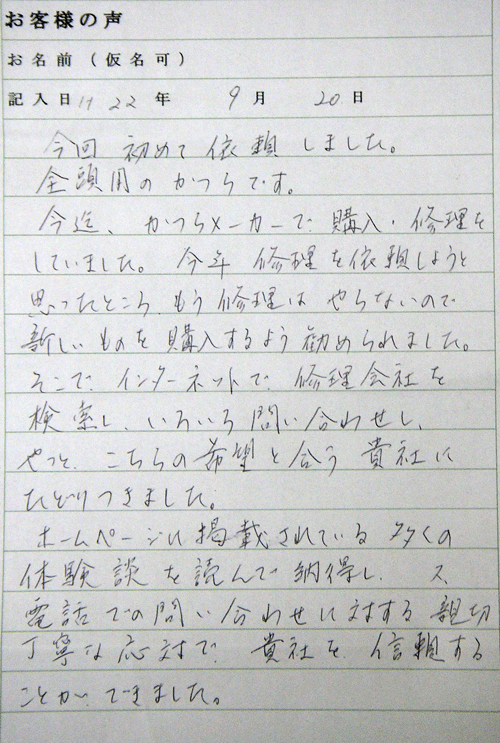 お客様の声
お名前（仮名可）
記入日 H 22 年 9 月 20 日
今回 初めて 依頼 しました。
全頭用の かつらです。
今迄、かつらメーカーで 購入・修理を
していました。今年 修理を依頼しようと
思ったところ、もう修理は やらないので
新しいものを購入するよう勧められました。
そこで インターネットで、修理会社を
検索し、いろいろ 問い合わせし、
やっと、こちらの希望と合う 貴社に
たどりつきました。
ホームページに掲載されている 多くの
体験談を読んで納得し、又、
電話での問い合わせに対する 親切
丁寧な応対で、貴社を 信頼する
ことが できました。